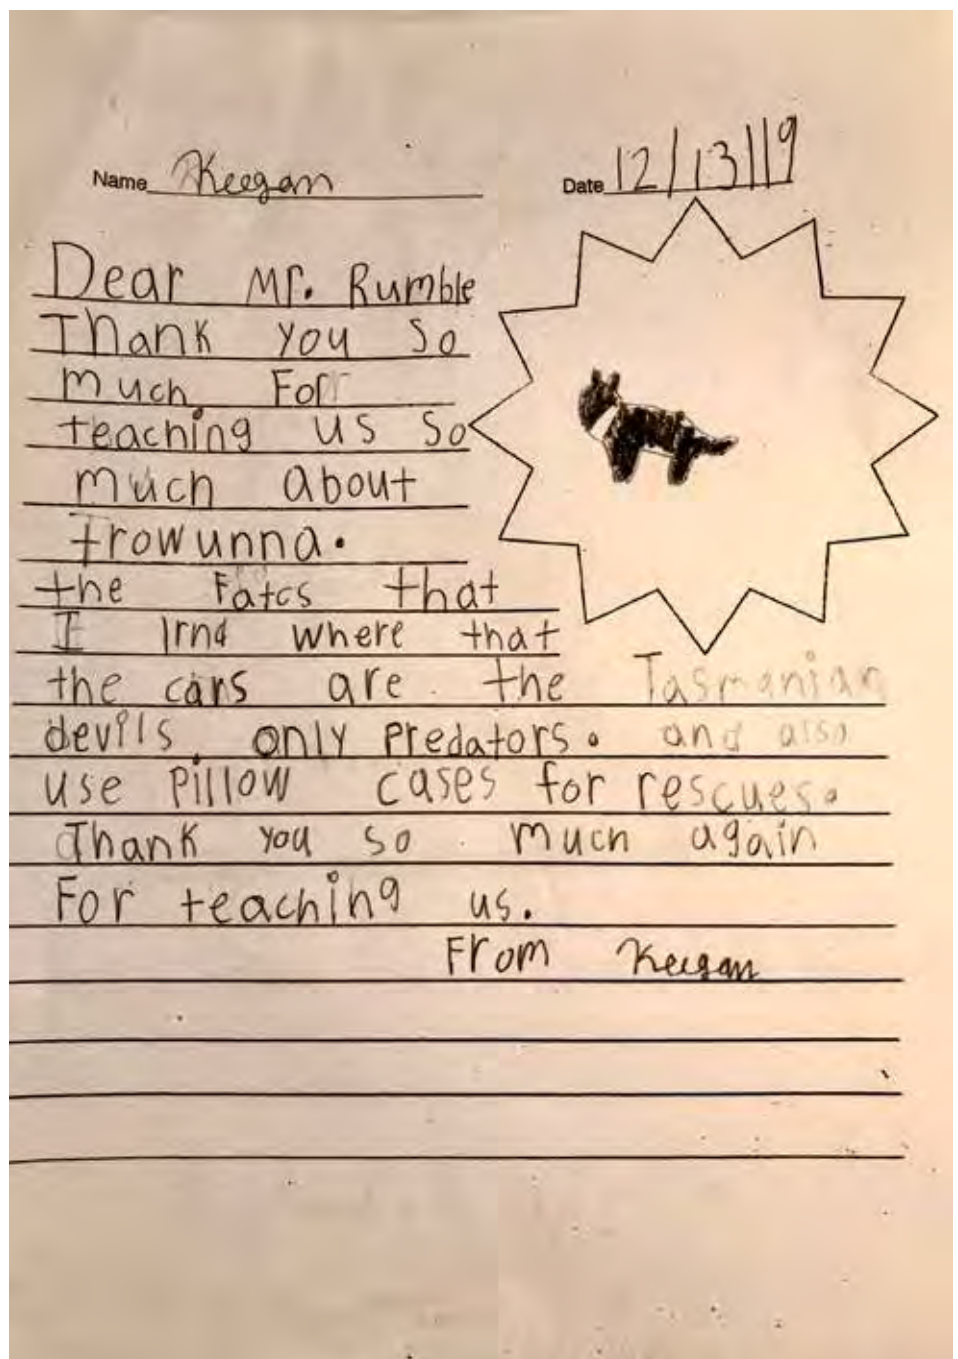 Name Keegan
Date 12/13/19
Dear Mr. Rumble
Thank you so
much For
teaching us so
much about
trowunna.
the Fatcs that
I lrnd where that
the cars are the Tasmanian
devils only predators. and also
use pillow cases for rescues.
Thank you so much again
For teaching us.
From Keegan